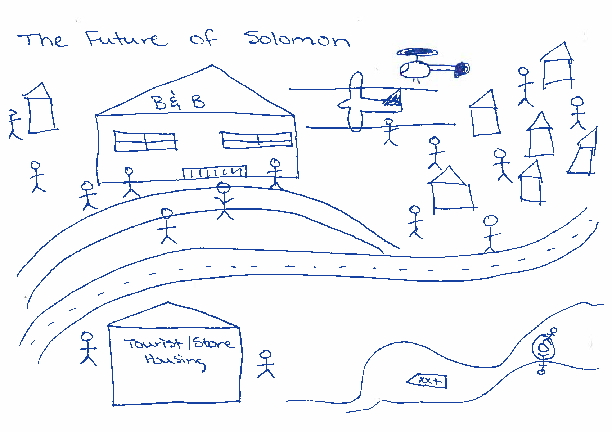 The Future of Solomon
B & B
Tourist/Store
Housing